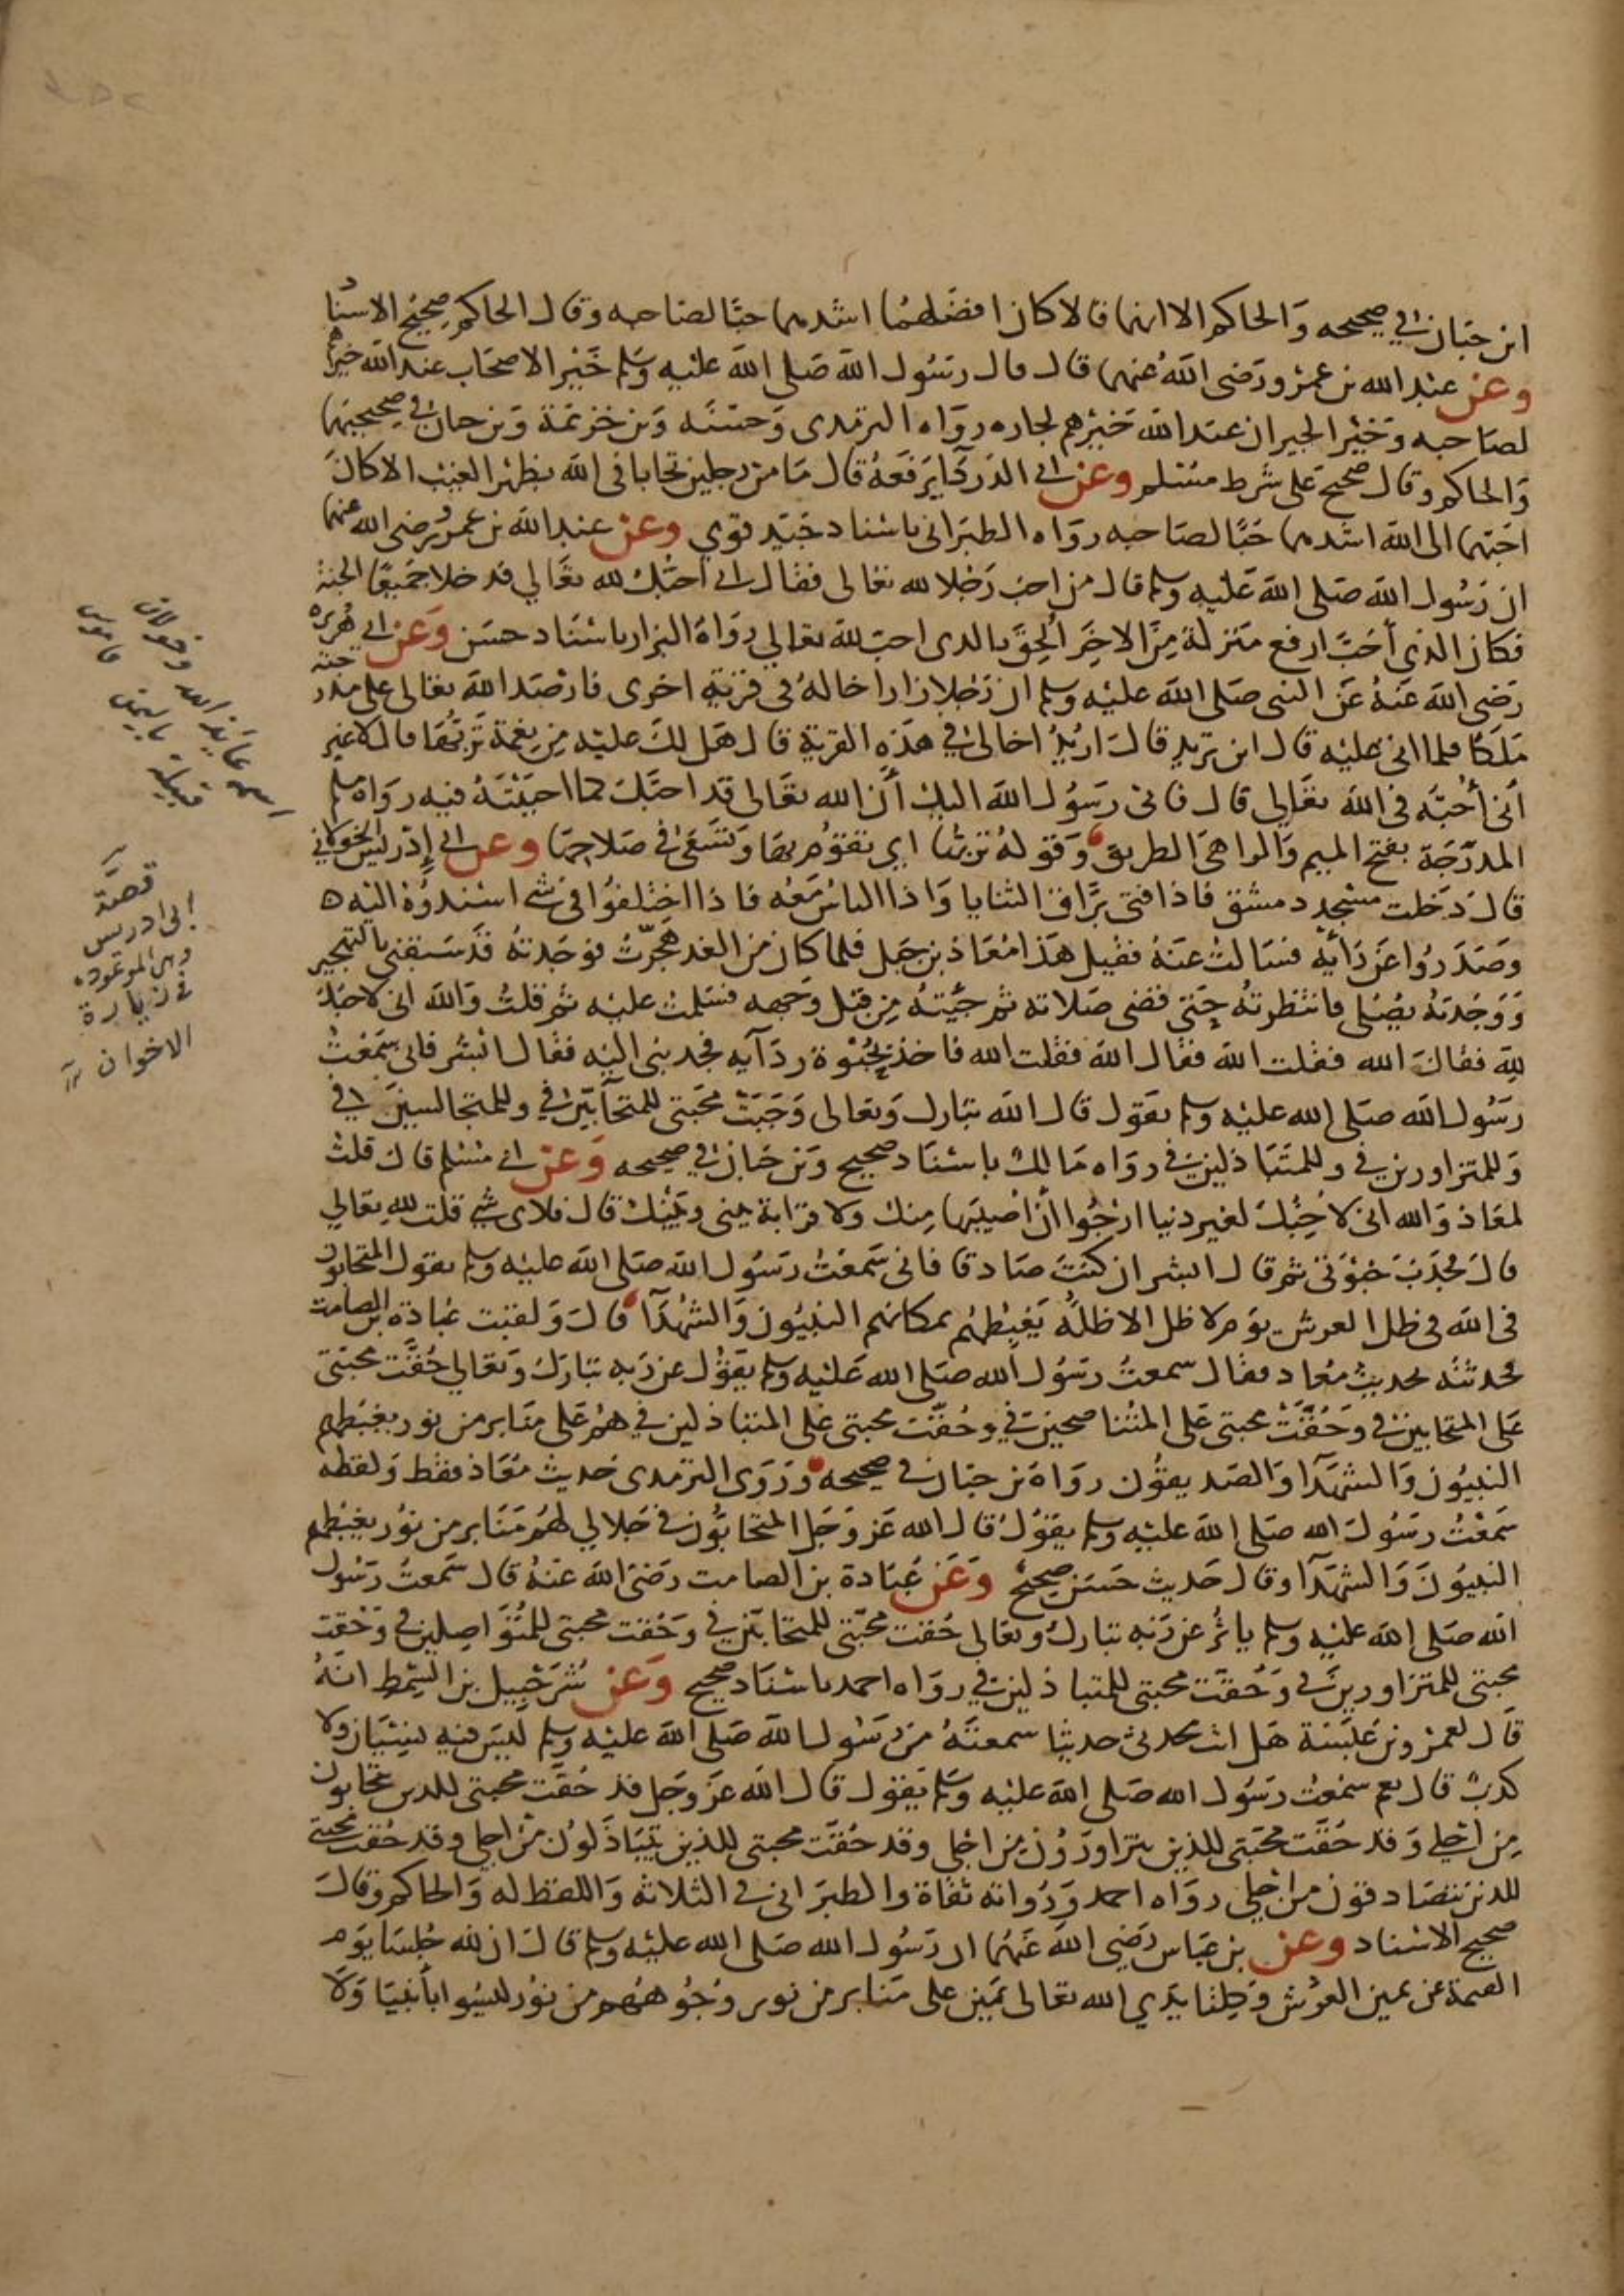 ابن حبان في صحيحه والحاكم الا انهما قالا كان افضلهما اشدهما حبا لصاحبه وقال الحاكم صحيح الاسناد
وعن عبد الله بن عمرو رضى الله عنهما قال قال رسول الله صلى الله عليه وسلم خير الاصحاب عند الله خيرهم
لصاحبه وخير الجيران عند الله خيرهم لجاره رواه الترمدى وحسنه وبن خزيمة وبن حبان في صحيحيهما
والحاكم وقال صحيح على شرط مسلم وعن ابي الدردآ يرفعه قال ما من رجلين تحابا فى الله بظهر الغيب الا كان
احبهما الى الله اشدهما حبا لصاحبه رواه الطبرانى باسناد جيد قوي وعن عبد الله بن عمرو رضى الله عنهما
ان رسول الله صلى الله عليه وسلم قال من احب رجلا لله تعالى فقال انى احبك لله تعالي فدخلا جميعا الجنة
فكان الذي أحب ارفع منزلة من الاخر ألحق بالدى احب لله تعالي رواه البزار باسناد حسن وعن ابي هريرة
رضى الله عنه عن النبى صلى الله عليه وسلم ان رجلا زار اخا له فى قرية اخرى فارصد الله تعالى على مدرجته
ملكا فلما اتى عليه قال اين تريد قال اريد اخا لى في هذه القرية قال هل لك عليه من نعمة تربها قال لا غير
أنى أحبه فى الله تعالي قال فانى رسول الله اليك أن الله تعالى قد احبك كما احببته فيه رواه مسلم
المدرجة بفتح الميم والرا هى الطريق وقوله تربها اي تقوم بها وتسعى في صلاحها وعن ابي إدريس الخولاني
قال دخلت مسجد دمشق فاذا فتى براق الثنايا واذا الناس معه فاذا اختلفوا فى شي اسندوه اليه
وصدروا عن رأيه فسالت عنه فقيل هذا معاذ بن جبل فلما كان من الغد هجرت فوجدته قد سبقني بالتهجير
ووجدته يصلى فانتظرته حتى قضى صلاته ثم جيته من قبل وجهه فسلمت عليه ثم قلت والله انى لاحبك
لله فقال الله فقلت الله فقال الله فقلت الله فاخذ بحبوة ردآيه فجدبنى اليه فقال ابشر فانى سمعت
رسول الله صلى الله عليه وسلم يقول قال الله تبارك وتعالى وجبت محبتى للمتحآبين في وللمتجالسين في
وللمتزاورين في وللمتباذلين في رواه مالك باسناد صحيح وبن حبان في صحيحه وعن ابي مسلم قال قلت
لمعاذ والله انى لاحبك لغير دنيا ارجوا أن اصيبها منك ولا قرابة بينى وبينك قال فلاى شي قلت لله تعالي
قال فجدب حبوتى ثم قال ابشر ان كنت صادقا فانى سمعت رسول الله صلى الله عليه وسلم يقول المتحابون
فى الله فى ظل العرش يوم لا ظل الا ظله يغبطهم بمكانهم النبيون والشهدآ قال ولقيت عبادة بن الصامت
فحدثته بحديث معاد فقال سمعت رسول الله صلى الله عليه وسلم يقول عن ربه تبارك وتعالي حقت محبتى
على المتحابين في وحقت محبتى على المتناصحين في وحقت محبتى على المتباذلين في هم على منابر من نور يغبطهم
النبيون والشهدآ والصديقون رواه بن حبان في صحيحه وروى الترمدى حديث معاذ فقط ولفظه
سمعت رسول الله صلى الله عليه وسلم يقول قال الله عز وجل المتحابون في جلالي لهم منابر من نور يغبطهم
النبيون والشهدآ وقال حديث حسن صحيح وعن عبادة بن الصامت رضى الله عنه قال سمعت رسول
الله صلى الله عليه وسلم ياثر عن ربه تبارك وتعالى حقت محبتى للمتحابين في وحقت محبتى للمتواصلين في وحقت
محبتى للمتزاورين في وحقت محبتى للمتباذلين في رواه احمد باسناد صحيح وعن شرحبيل بن السمط انه
قال لعمرو بن عبسة هل انت محدثى حديثا سمعته من رسول الله صلى الله عليه وسلم ليس فيه نسيان ولا
كدب قال نعم سمعت رسول الله صلى الله عليه وسلم يقول قال الله عز وجل قد حقت محبتى للدين يتحابون
من اجلي وقد حقت محبتى للذين يتزاورون من اجلى وقد حقت محبتى للذين يتباذلون من اجلى وقد حقت محبتى
للدين يتصادقون من اجلي رواه احمد ورواته ثقاة والطبرانى في الثلاثه واللفظ له والحاكم وقال
صحيح الاسناد وعن بن عباس رضي الله عنهما ان رسول الله صلى الله عليه وسلم قال ان لله جلسا يوم
القيمة عن يمين العرش وكلتا يدي الله تعالى يمين على منابر من نور وجوههم من نور ليسوا بأنبيا ولا
اسمه عايذ الله
قصة
ابى ادريس
في زيارة
الاخوان